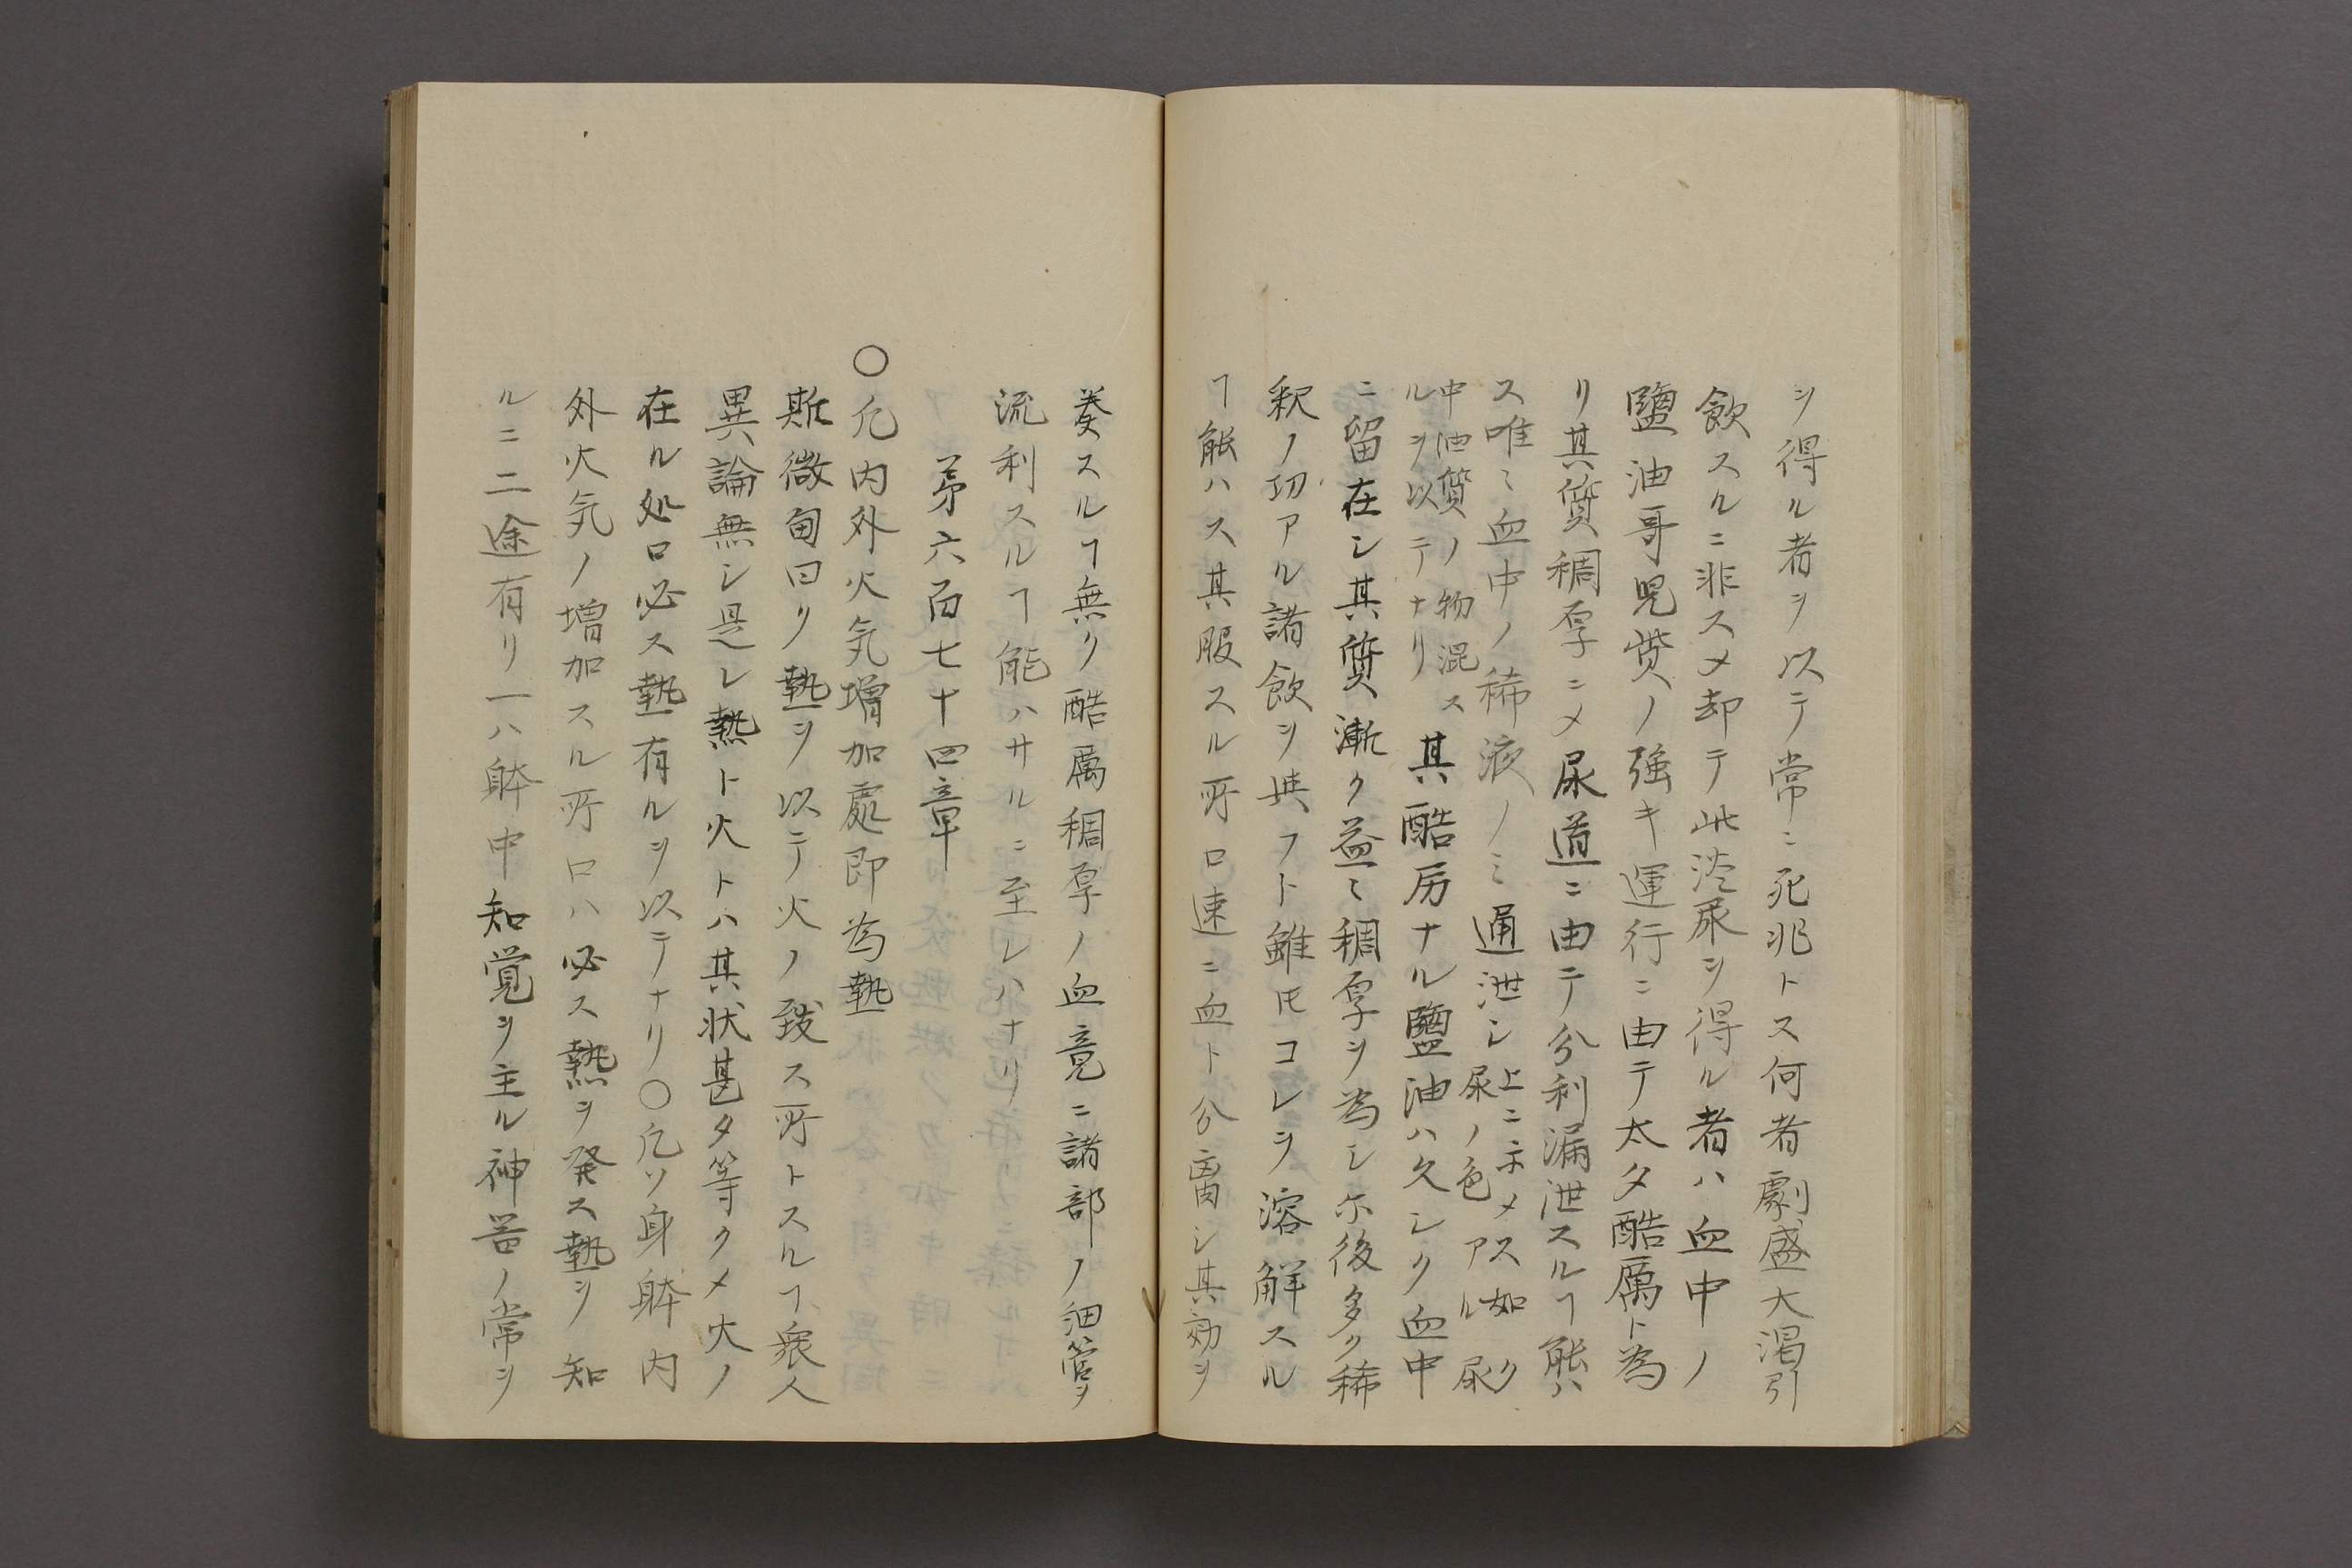 ヲ得ル者ヲ以テ常ニ死兆トス何者劇盛大渇引
飲スルニ非スメ却テ此淡尿ヲ得ル者ハ血中ノ
鹽油哥児質ノ強キ運行ニ由テ太タ酷厲ト為
リ其質稠厚ニメ尿道ニ由テ分利漏泄スルヿ能ハ
ス唯ミ血中ノ稀液ノミ通泄シ上ニ示メス如ク尿ノ色アル尿
中油質ノ物混スルヲ以テナリ其酷厉ナル鹽油ハ久シク血中
ニ留在シ其質漸ク益ミ稠厚ヲ為シ尓後多ク稀
釈ノ功アル諸飲ヲ與フト雖𪜈コレヲ溶解スル
ヿ能ハス其服スル所ロ速ニ血ト分離シ其効ヲ
奏スルヿ無ク酷厲稠厚ノ血竟ニ諸部ノ細管ヲ
流利スルヿ能ハサルニ至レハナリ
第六百七十四章
〇凡内外火気増加處即為熱
斯微甸曰ク熱ヲ以テ火ノ致ス所トスルヿ衆人
異論無シ是レ熱ト火トハ其状甚タ等クメ火ノ
在ル処ロ必ス熱有ルヲ以テナリ〇凡ソ身躰内
外火気ノ増加スル所ロハ必ス熱ヲ発ス熱ヲ知
ルニ二途有リ一ハ躰中知覚ヲ主ル神器ノ常ヲ